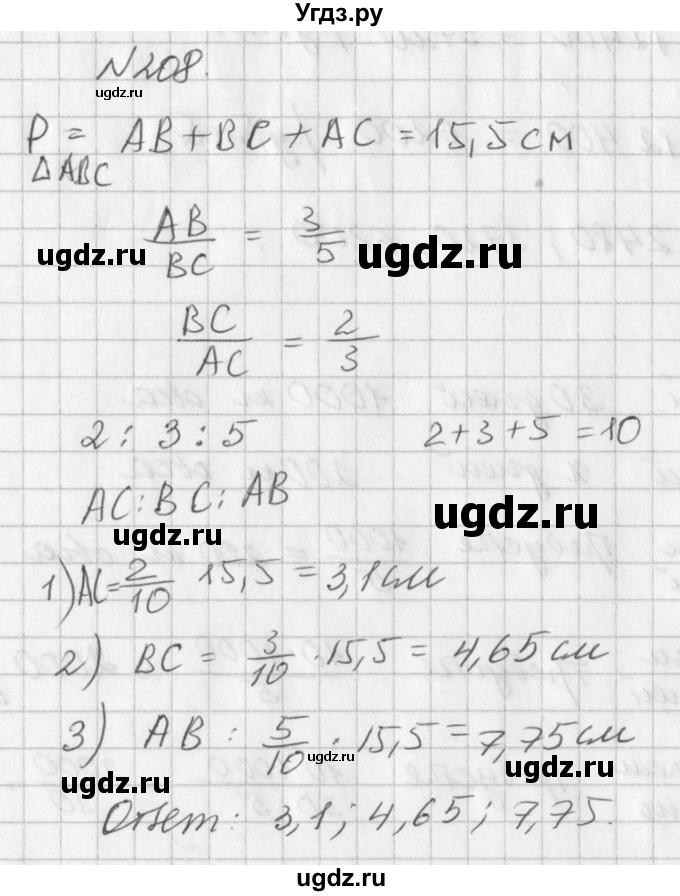 Угдз.ру
N208.
ugdz.ru
P = AB+BC+AC=15,5см
ΔABC
AB/BC = 3/5
ugdz.ru ugdz.ru
BC/AC = 2/3
2 : 3 : 5 2+3+5=10
AC:BC:AB
ugdz.ru ugdz.ru
1) AC=2/10 15,5=3,1см
2) BC = 3/10 · 15,5 = 4,65 см
ugdz.ru ugdz.ru
3) AB : 5/10 · 15,5=7,75см
ugdz.ru
ugdz.ru ugdz.ru
Ответ: 3,1; 4,65; 7,75.
ugdz.ru